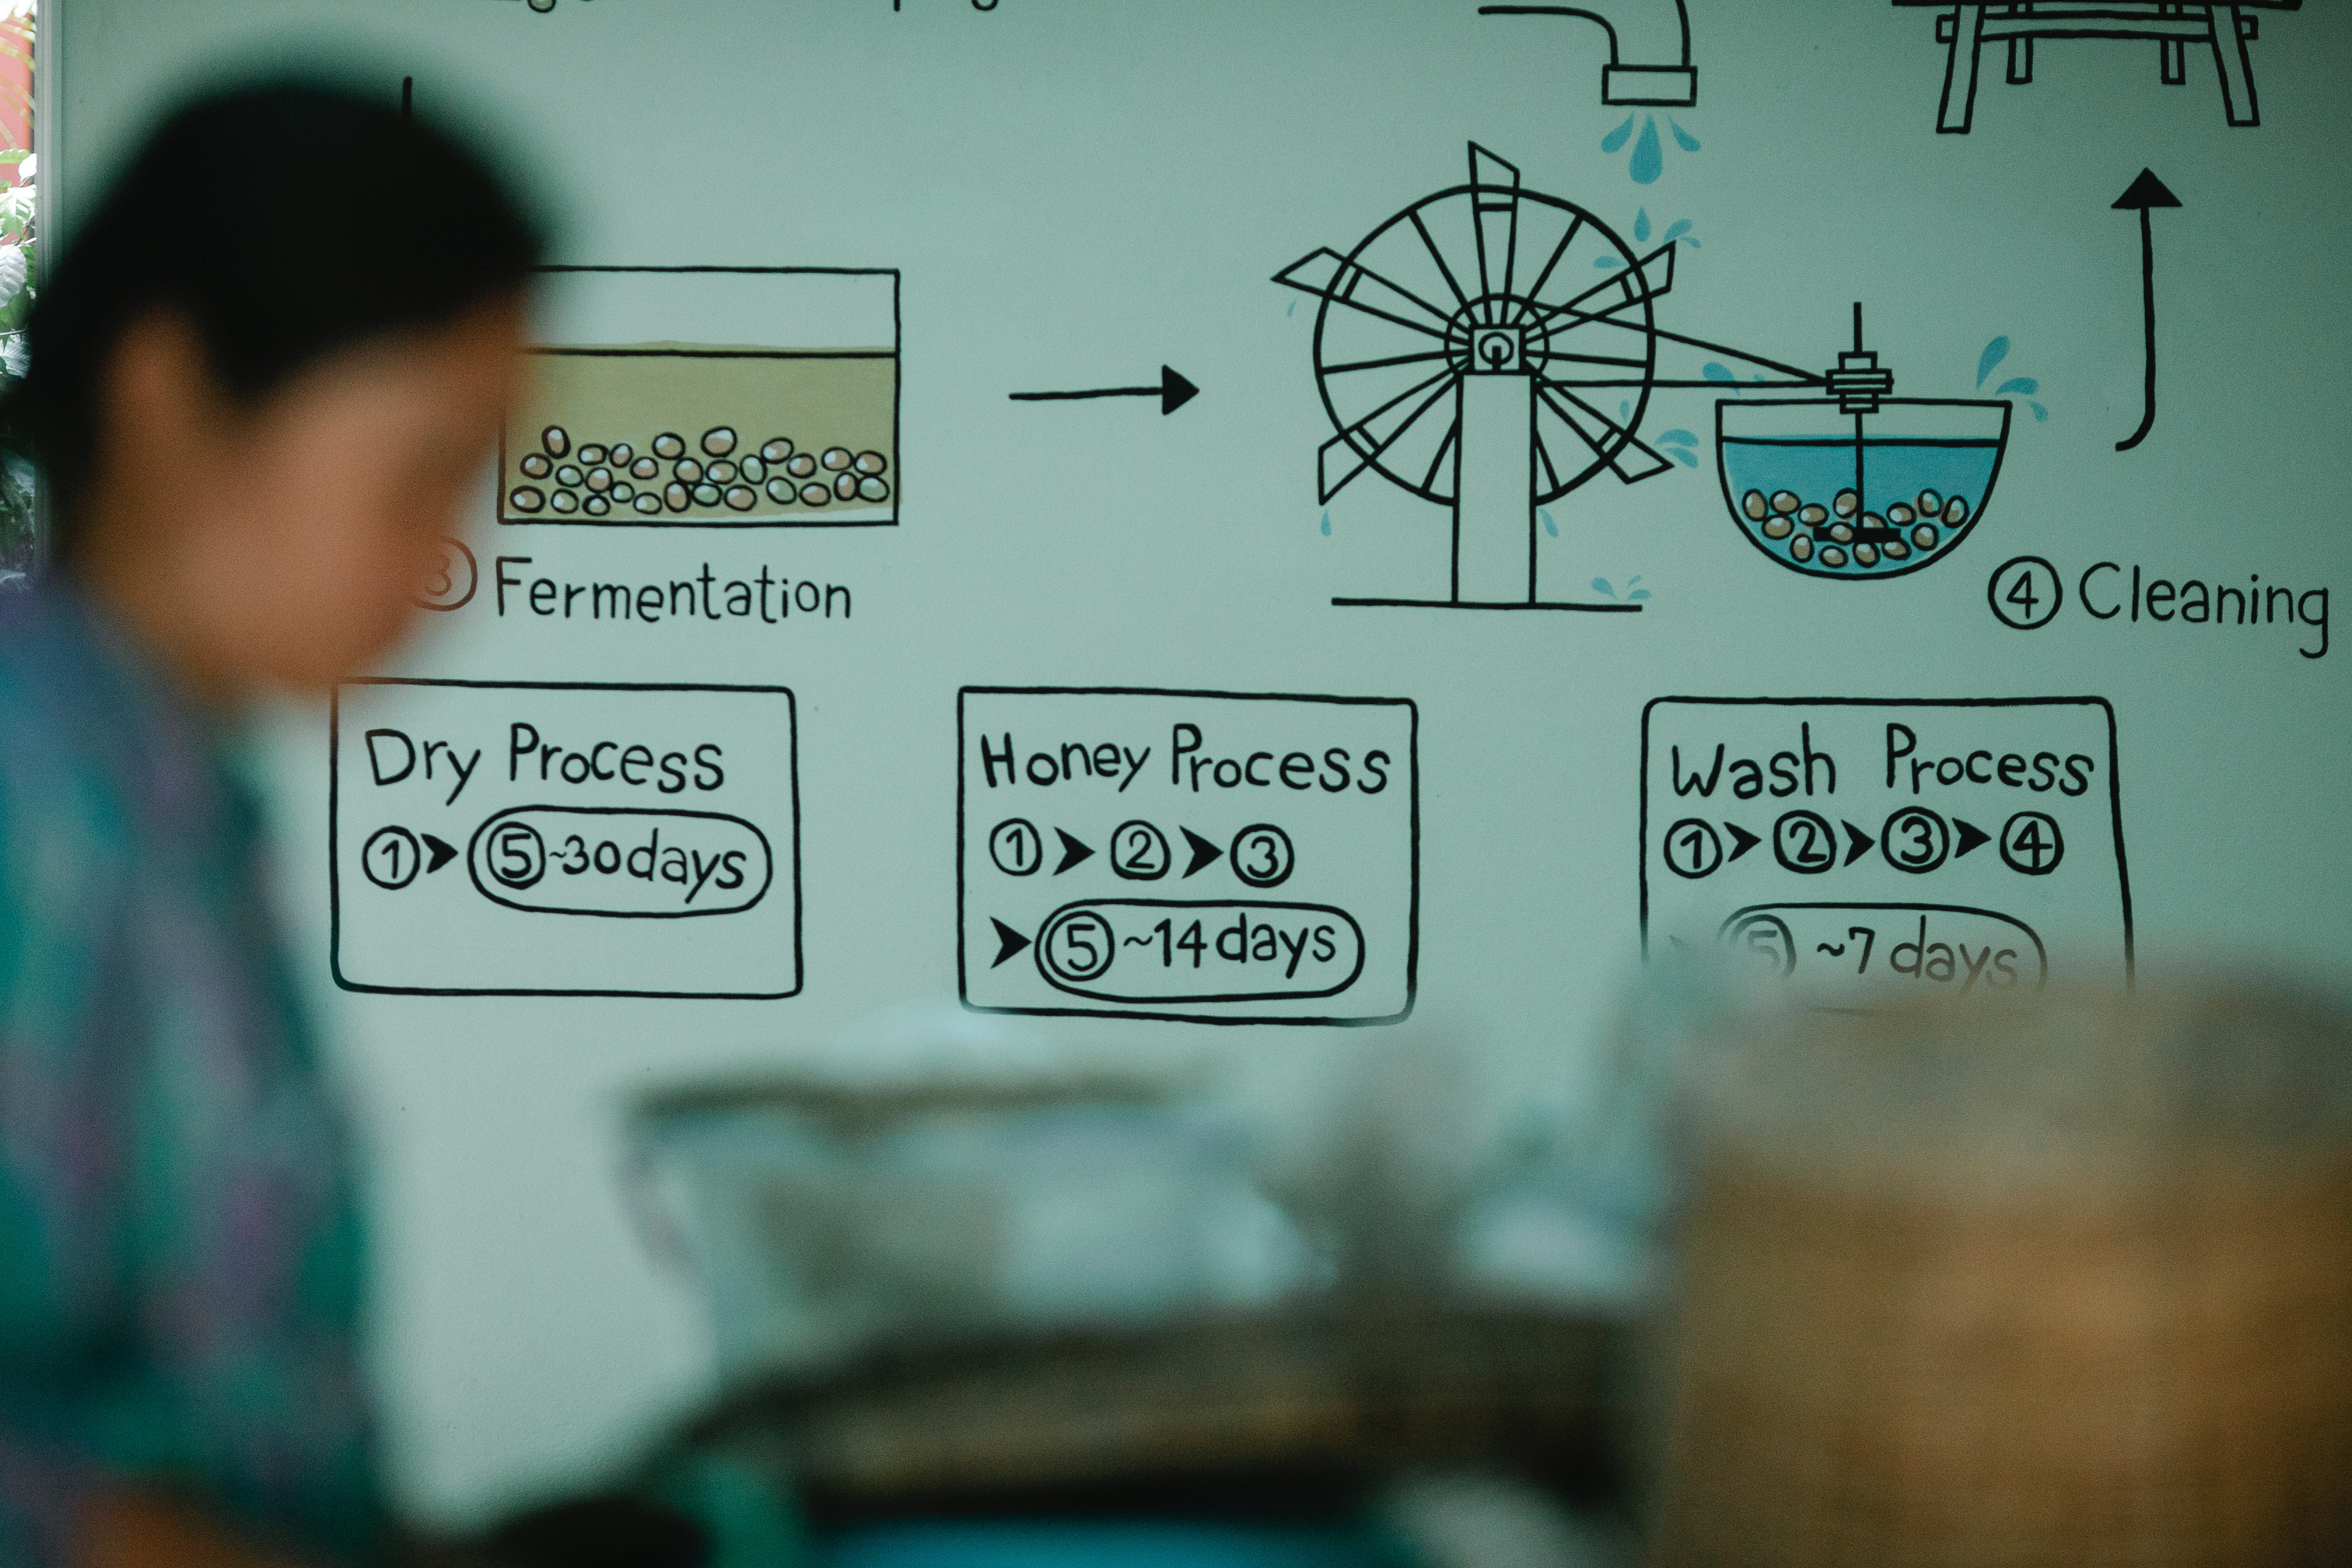 ③ Fermentation
④ Cleaning
Dry Process
① > ⑤ ~30days
Honey Process
① > ② > ③
> ⑤ ~14 days
Wash Process
① > ② > ③ > ④
> ⑤ ~7 days